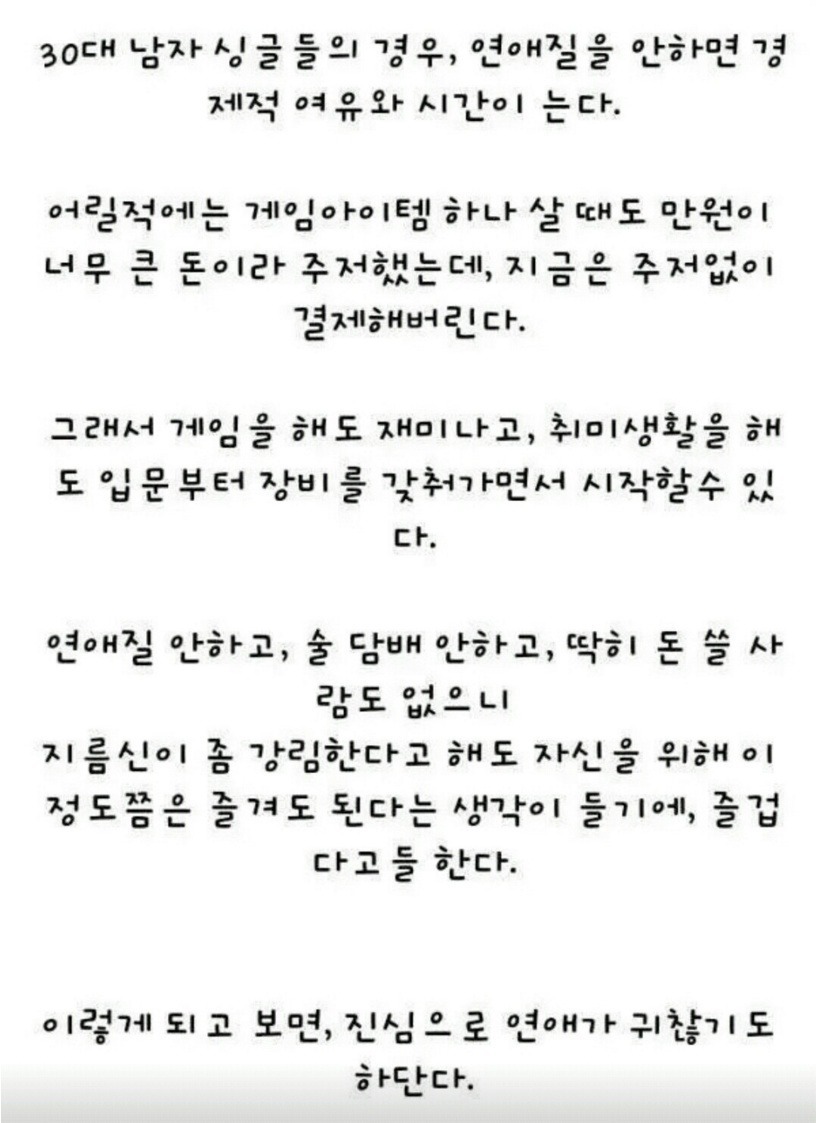 30대 남자 싱글들의 경우, 연애질을 안하면 경
제적 여유와 시간이 는다.
어릴적에는 게임아이템 하나 살 때도 만원이
너무 큰 돈이라 주저했는데, 지금은 주저없이
결제해버린다.
그래서 게임을 해도 재미나고, 취미생활을 해
도 입문부터 장비를 갖춰가면서 시작할수 있
다.
연애질 안하고, 술 담배 안하고, 딱히 돈 쓸 사
람도 없으니
지름신이 좀 강림한다고 해도 자신을 위해 이
정도쯤은 즐겨도 된다는 생각이 들기에, 즐겁
다고들 한다.
이렇게 되고 보면, 진심으로 연애가 귀찮기도
하단다.